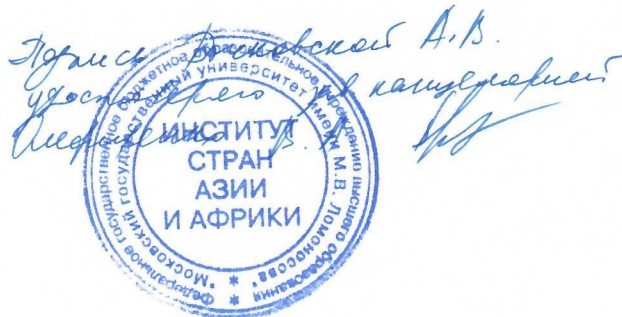 Подпись А.В.
удостоверяю зав канцелярией
В.
Федеральное государственное бюджетное образовательное учреждение высшего образования
"Московский государственный университет имени М.В. Ломоносова"
ИНСТИТУТ
СТРАН
АЗИИ
И АФРИКИ